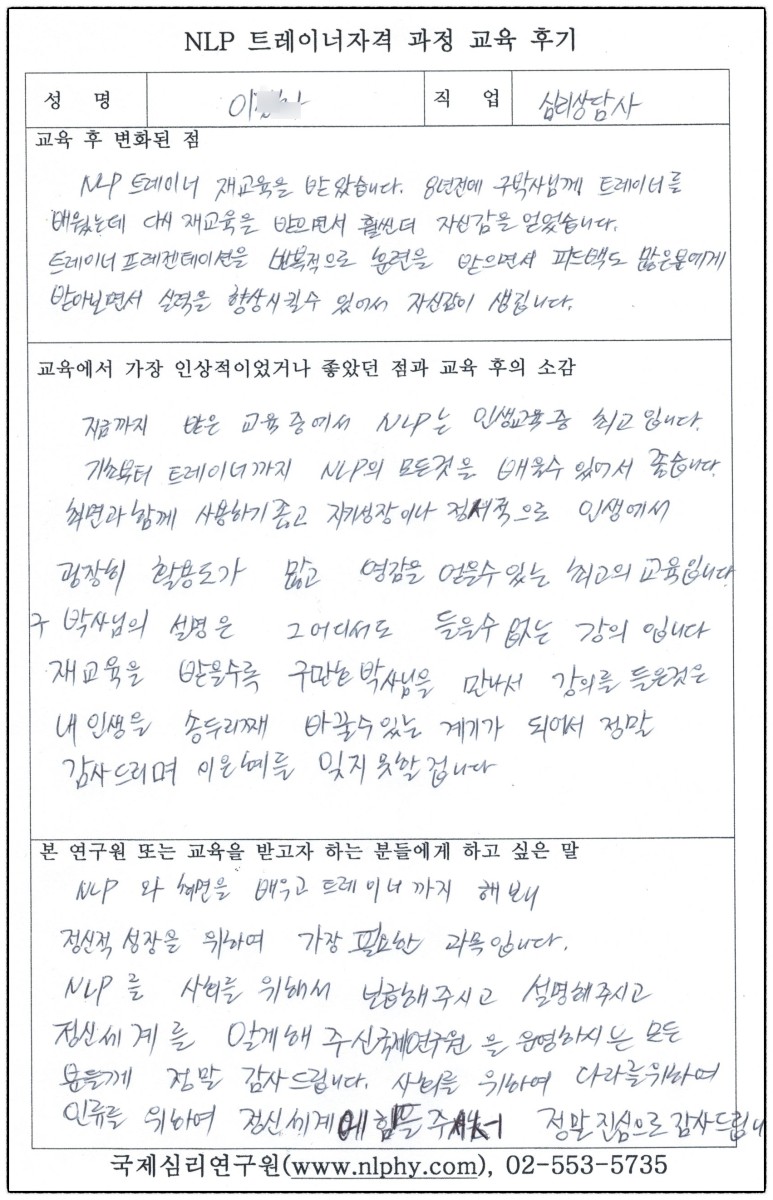 NLP 트레이너자격 과정 교육 후기
성 명 이 직 업 심리상담사
교육 후 변화된 점
NLP 트레이너 재교육을 받았습니다. 8년전에 구박사님께 트레이너를
배웠는데 다시 재교육을 받으면서 훨씬더 자신감을 얻었습니다.
트레이너 프레젠테이션을 반복적으로 훈련을 받으면서 피드백도 많은분에게
받아보면서 실력을 향상시킬수 있어서 자신감이 생깁니다.
교육에서 가장 인상적이었거나 좋았던 점과 교육 후의 소감
지금까지 받은 교육중에서 NLP는 인생교육중 최고입니다.
기초부터 트레이너까지 NLP의 모든것을 배울수 있어서 좋습니다.
최면과 함께 사용하기좋고 자기성장이나 으로 인생에서
굉장히 활용도가 많고 영감을 얻을수있는 최고의 교육입니다
구 박사님의 설명은 그어디서도 들을수 없는 강의 입니다
재교육을 받을수록 구만호박사님을 만나서 강의를 들은것은
내 인생을 송두리째 바꿀수있는 계기가 되어서 정말
감사드리며 이은혜를 잊지못할겁니다
본 연구원 또는 교육을 받고자 하는 분들에게 하고 싶은 말
NLP 와 최면을 배우고 트레이너까지 해보니
정신적 성장을 위하여 가장 필요한 과목입니다.
NLP를 사회를 위해서 보급해주시고 설명해주시고
정신세계를 알게해 주신국제연구원을 운영하시는 모든
분들께 정말 감사드립니다. 사회를 위하여 나라를위하여
인류를 위하여 정신세계에 힘을 주셔서 정말 진심으로감사드립니
국제심리연구원(www.nlphy.com), 02-553-5735